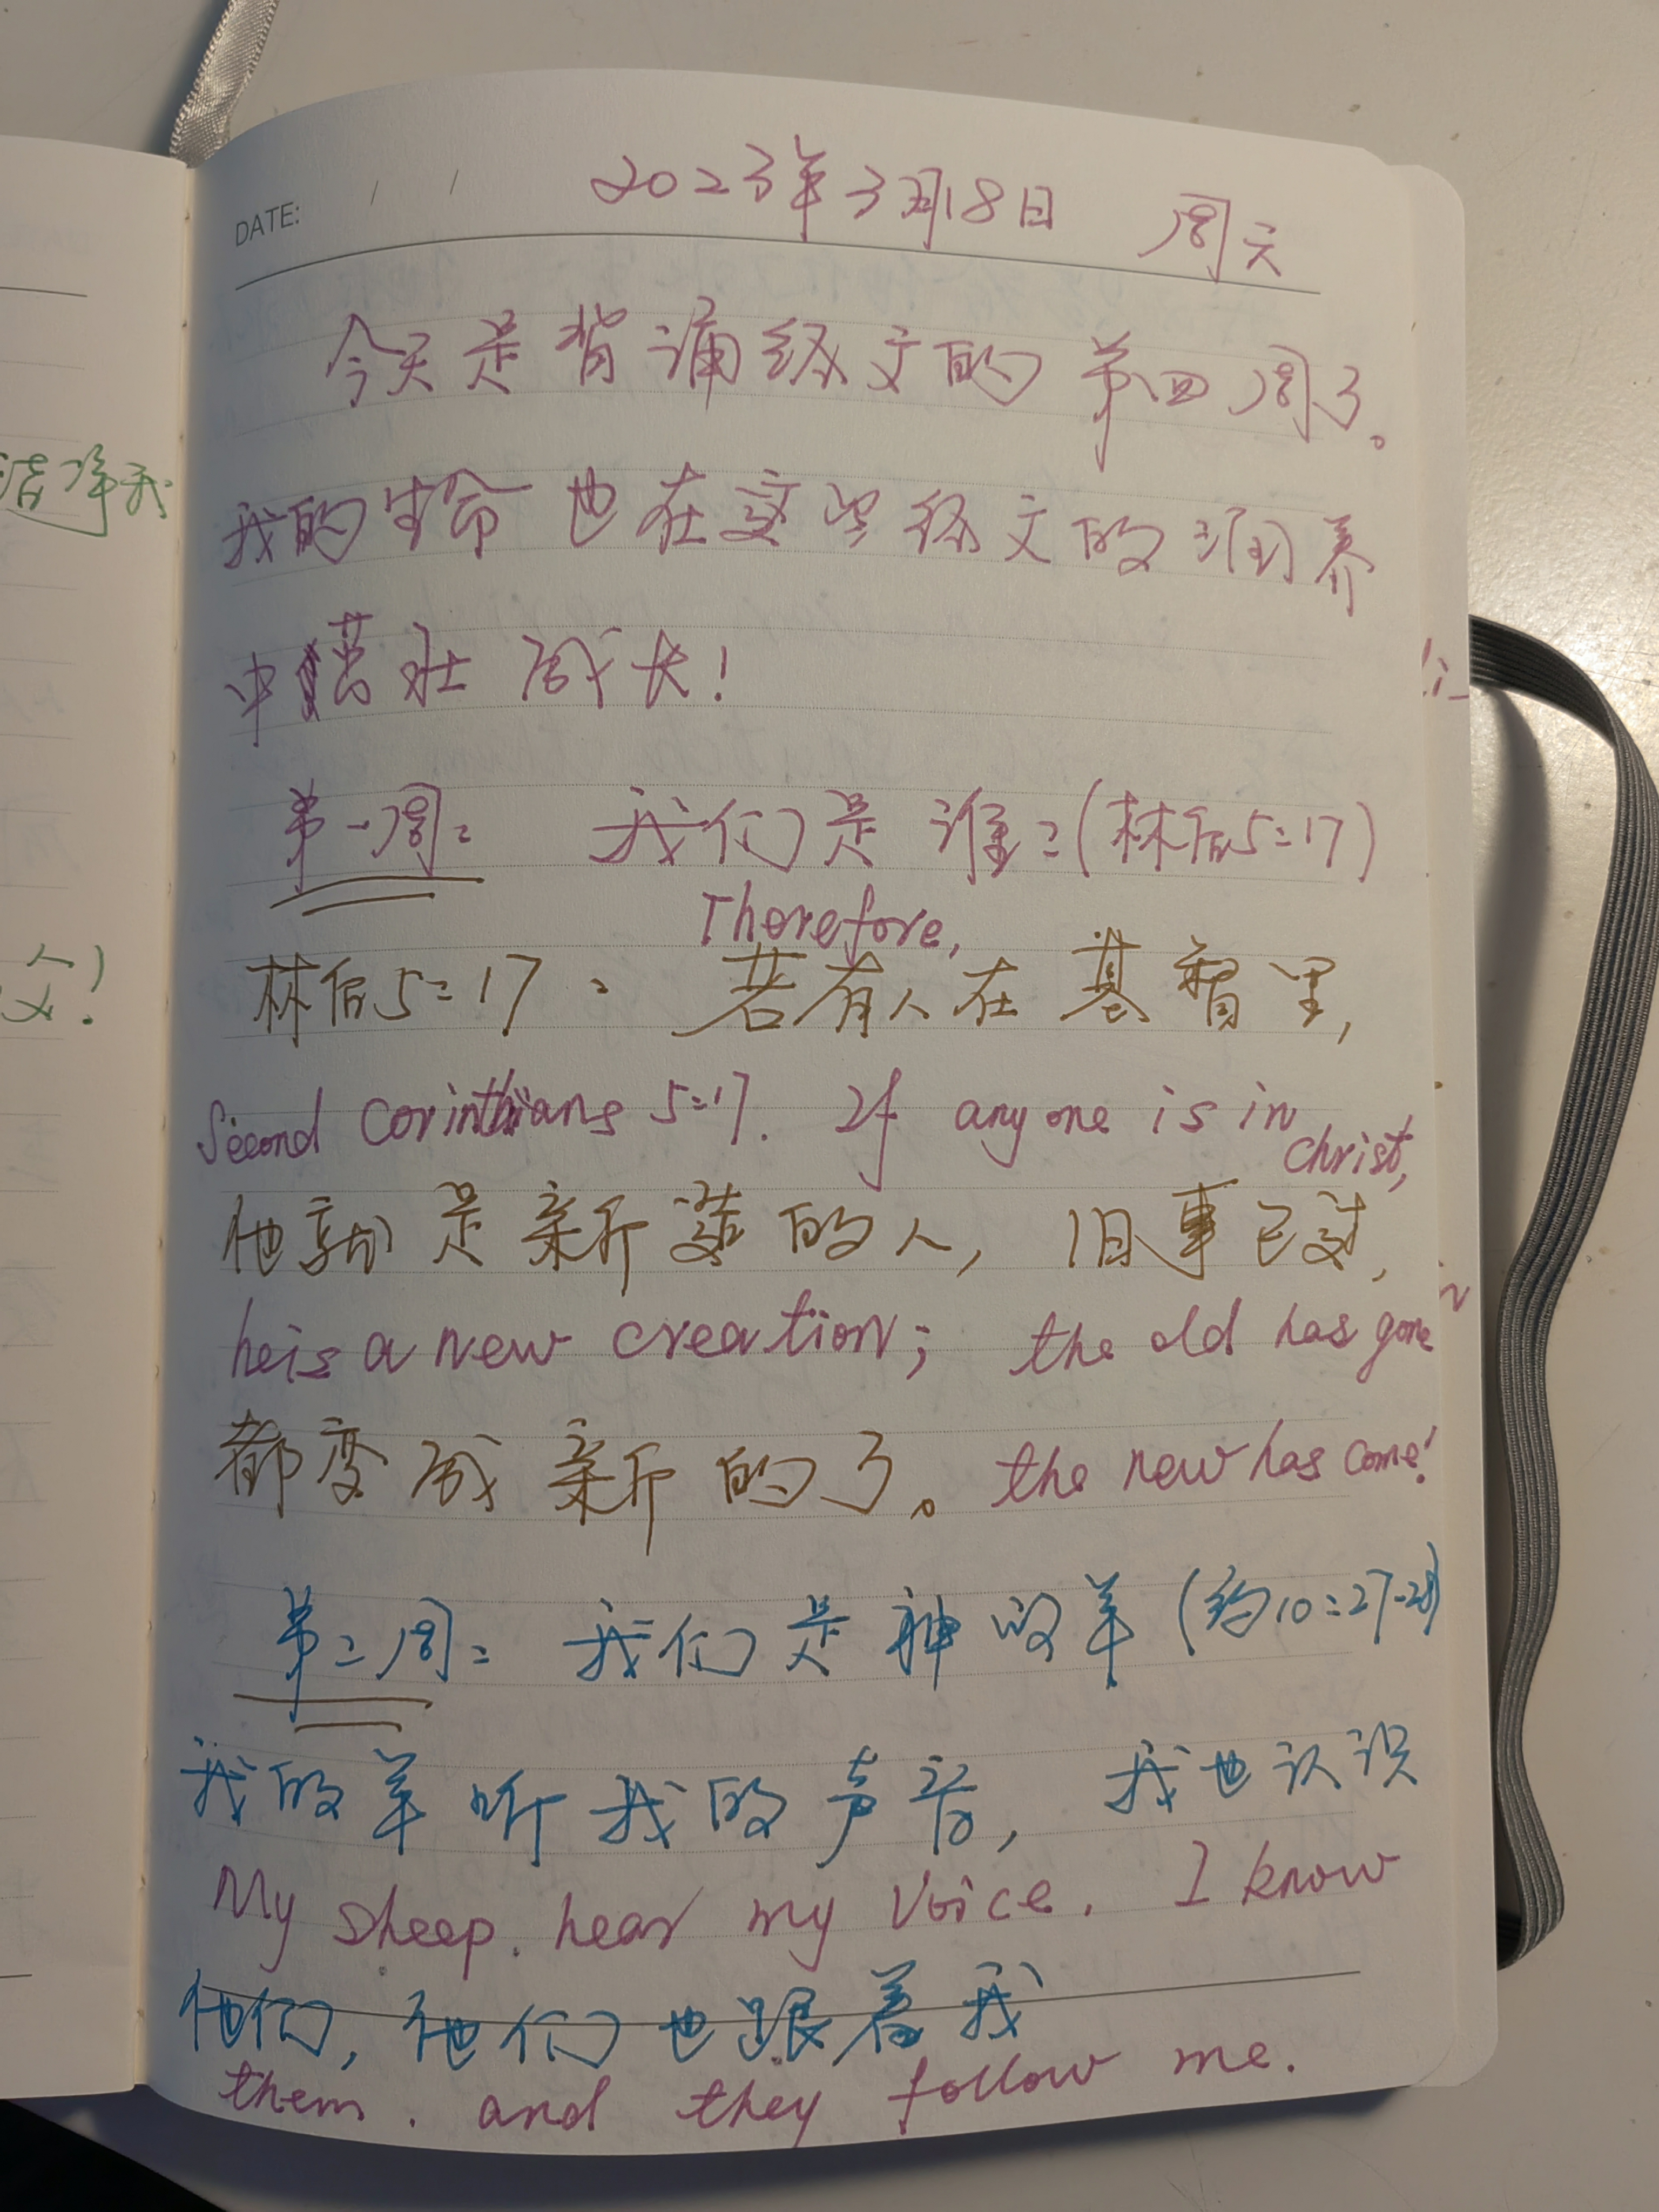 洁净我
人)
父!
DATE: / / 2023年3月18日 周天
今天是背诵经文的第四周了。
我的生命也在这些经文的润养
中茁壮成长!
第一周: 我们是谁:(林后5:17)
Therefore,
林后5:17: 若有人在基督里,
Second Corinthians 5:17. If anyone is in Christ,
他就是新造的人, 旧事已过,
he is a new creation; the old has gone
都变成新的了。 the new has come!
第二周: 我们是神的羊 (约10:27-28)
我的羊听我的声音, 我也认识
My sheep. hear my voice. I know
他们, 他们也跟着我
them. and they follow me.